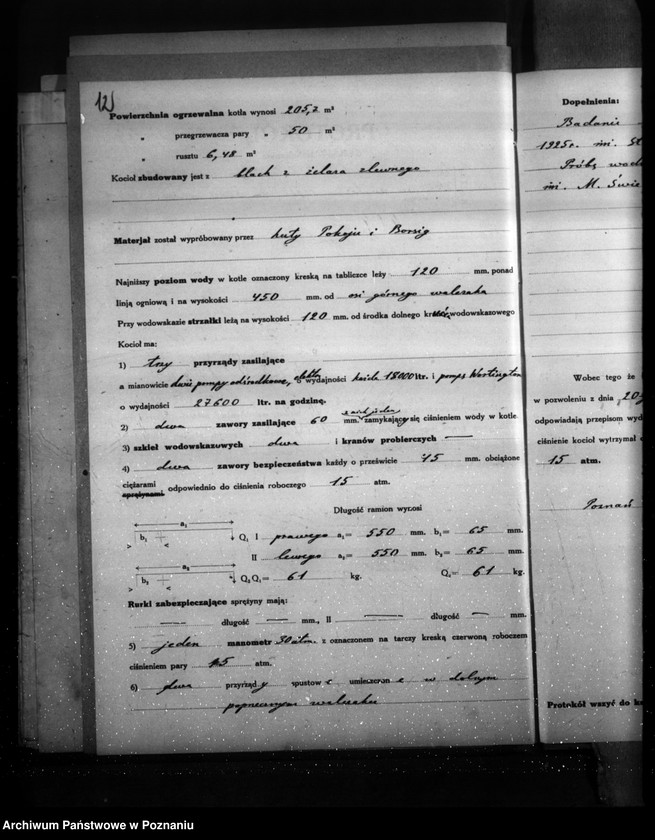 12)
Powierzchnia ogrzewalna kotła wynosi 205,2 m²
„ przegrzewacza pary „ 50 m²
„ rusztu 6,48 m²
Kocioł zbudowany jest z blach z żelaza zlewnego
Materjał został wypróbowany przez huty Pokoju i Borsig
Najniższy poziom wody w kotle oznaczony kreską na tabliczce leży 120 mm. ponad
linją ogniową i na wysokości 450 mm. od osi górnego walczaka
Przy wodowskazie strzałki leżą na wysokości 120 mm. od środka dolnego wodowskazowego
Kocioł ma:
1) trzy przyrządy zasilające
a mianowicie dwie pompy odśrodkowe, elektr. o wydajności każda 18000 ltr. i pompa Wortington
o wydajności 27600 ltr. na godzinę.
2) dwa zawory zasilające 60 mm. z nich jeden zamykający się ciśnieniem wody w kotle
3) szkieł wodowskazowych dwa i kranów probierczych —
4) dwa zawory bezpieczeństwa każdy o prześwicie 75 mm. obciążone
ciężarami
sprężynami odpowiednio do ciśnienia roboczego 15 atm.
Długość ramion wynosi
a₁
b₁
Q₁ I prawego a₁= 550 mm. b₁= 65 mm.
II lewego a₂= 550 mm. b₂= 65 mm.
a₂
b₂
Q₂ Q₁= 61 kg. Q₂= 61 kg.
Rurki zabezpieczające sprężyny mają:
— długość — mm., II — długość — mm.
5) jeden manometr 30 atm. z oznaczonem na tarczy kreską czerwoną roboczem
ciśnieniem pary 15 atm.
6) dwa przyrządy spustowe umieszczone w dolnym
poprzecznym walczaku
Dopełnienia:
Badanie
1925r. inż. St
Próbę wod
inż. M. Świe
Wobec tego że
w pozwoleniu z dnia 20
odpowiadają przepisom wyd
ciśnienie kocioł wytrzymał
15 atm.
Poznań
Protokół wszyć do k
Archiwum Państwowe w Poznaniu